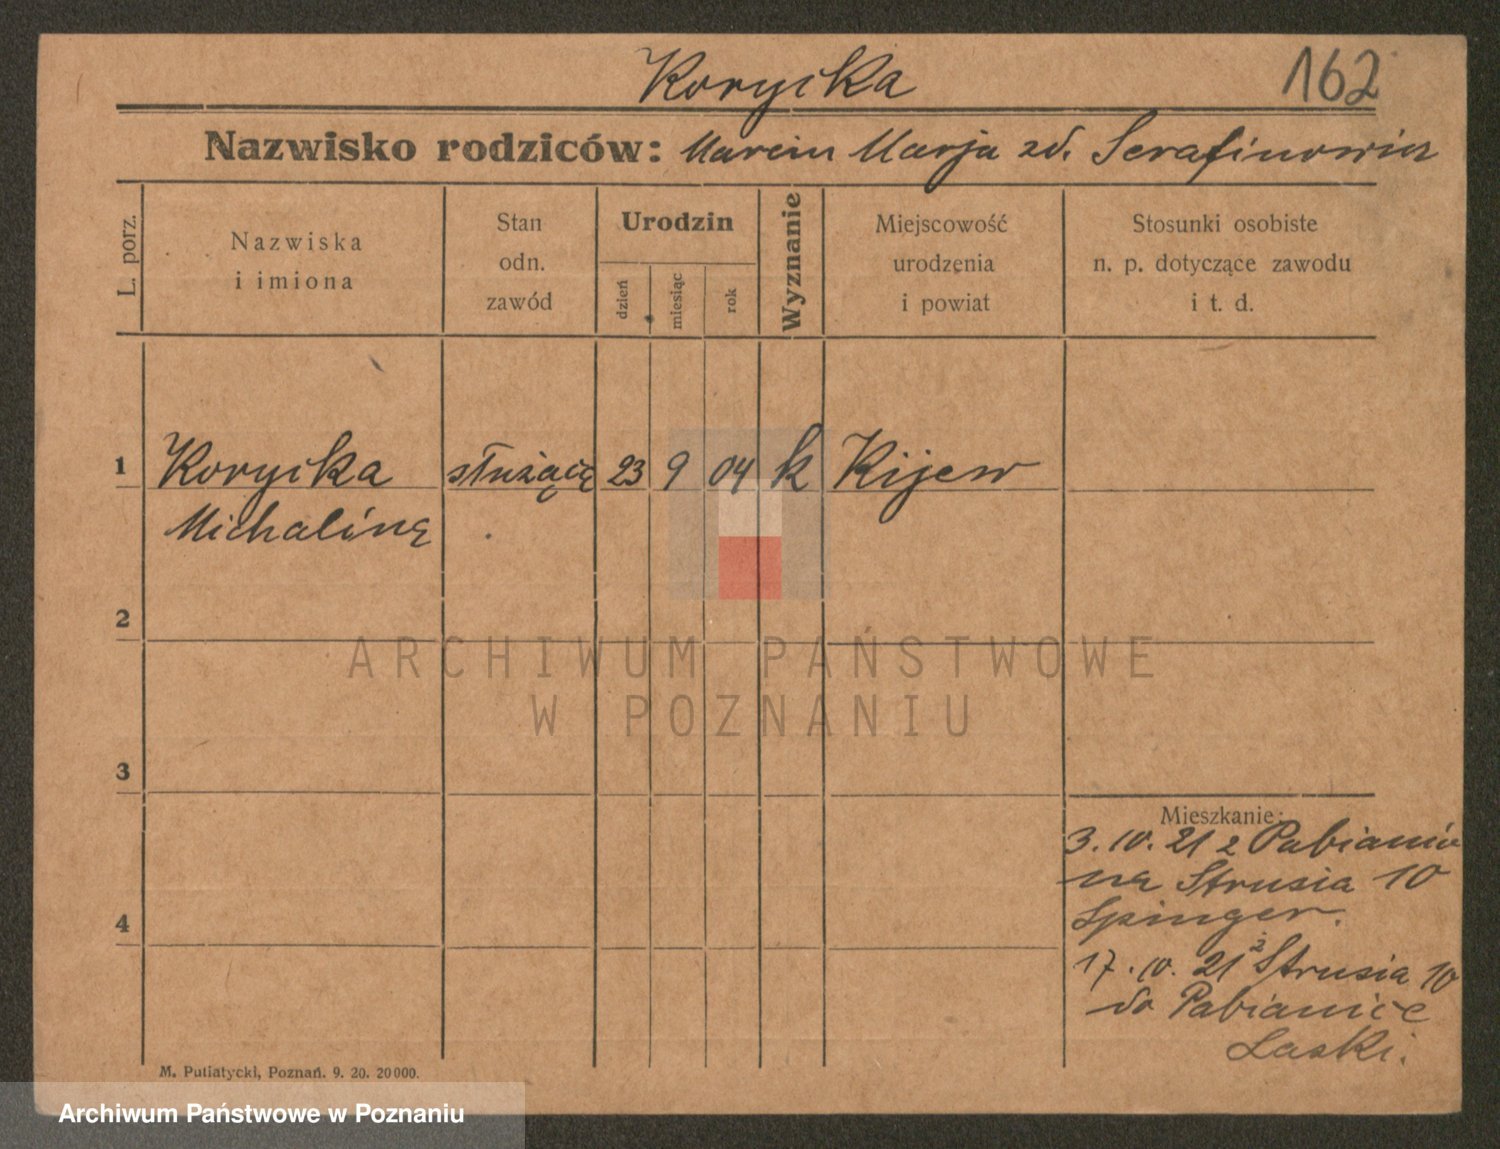 Korycka
162
Nazwisko rodziców: Marcin Marja zd. Serafinowicz
L. porz.
Nazwiska
i imiona
Stan
odn.
zawód
Urodzin
dzień
miesiąc
rok
Wyznanie
Miejscowość
urodzenia
i powiat
Stosunki osobiste
n. p. dotyczące zawodu
i t. d.
1 Korycka służąca 23 9 04 k Kijew
Michalina
2
ARCHIWUM PAŃSTWOWE
W POZNANIU
3
Mieszkanie:
3. 10. 21 z Pabianic
na Strusia 10
Spinger.
4
17. 10. 21 z Strusia 10
do Pabianice
Laski.
M. Putiatycki, Poznań. 9. 20. 20000.
Archiwum Państwowe w Poznaniu